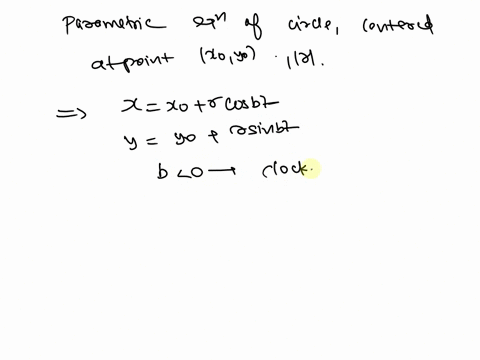 Parametric eqn of circle, centered
at point (x0, y0) , |r|.
=> x = x0 + r cosbt
y = y0 + r sinbt
b < 0 → clock